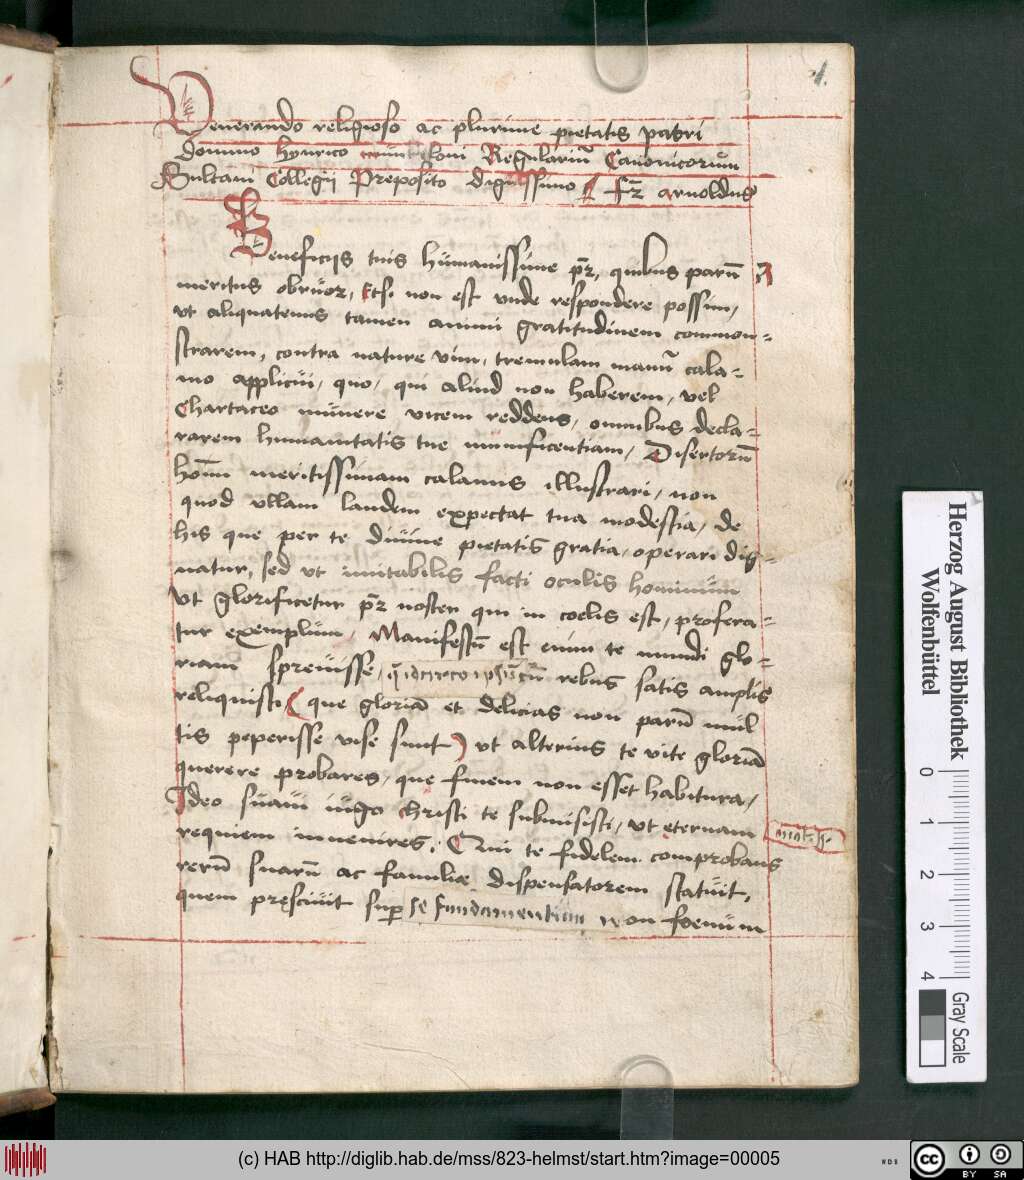 1.
Venerando religioso ac plurime pietatis patri
Domino hynrico Regulariū Canonicorum
Sultani Collegii Preposito dignissimo fr̄ arnoldus
Beneficijs tuis humanissime pr̄, quibus parū
meritus obruor, Etsi non est unde respondere possim,
ut aliquatenus tamen animi gratitudinem common-
strarem, contra nature vim, tremulam manū cala-
mo applicui, quo, qui aliud non haberem, vel
Chartaceo munere vicem reddens, omnibus decla-
rarem humanitatis tue munificentiam, Disertorū
hoīm meritissimam calamis illustrari, non
quod ullam laudem expectat tua modestia, de
his que per te divine pietatis gratia operari dig-
natur, sed ut imitabilis facti oculis hominum
ut glorificetur pr̄ noster qui in coelis est, profera-
tur exemplum, Manifestū est enim te mundi glo-
riam sprevisse, rebus satis amplis
reliquisti (que gloriā et delicias non parū mul
tis peperisse vise sunt) ut alterius te vite gloriā
querere probares, que finem non esset habitura,
Ideo suavi iugo christi te submisisti, ut eternam
requiem invenires, Qui te fidelem comprobans
rerū suarū ac familiæ dispensatorem statuit,
quem pręscivit sup se fundamentum non foenum
Herzog August Bibliothek
Wolfenbüttel
0 1 2 3 4
Gray Scale
(c) HAB http://diglib.hab.de/mss/823-helmst/start.htm?image=00005
WDB
cc BY SA